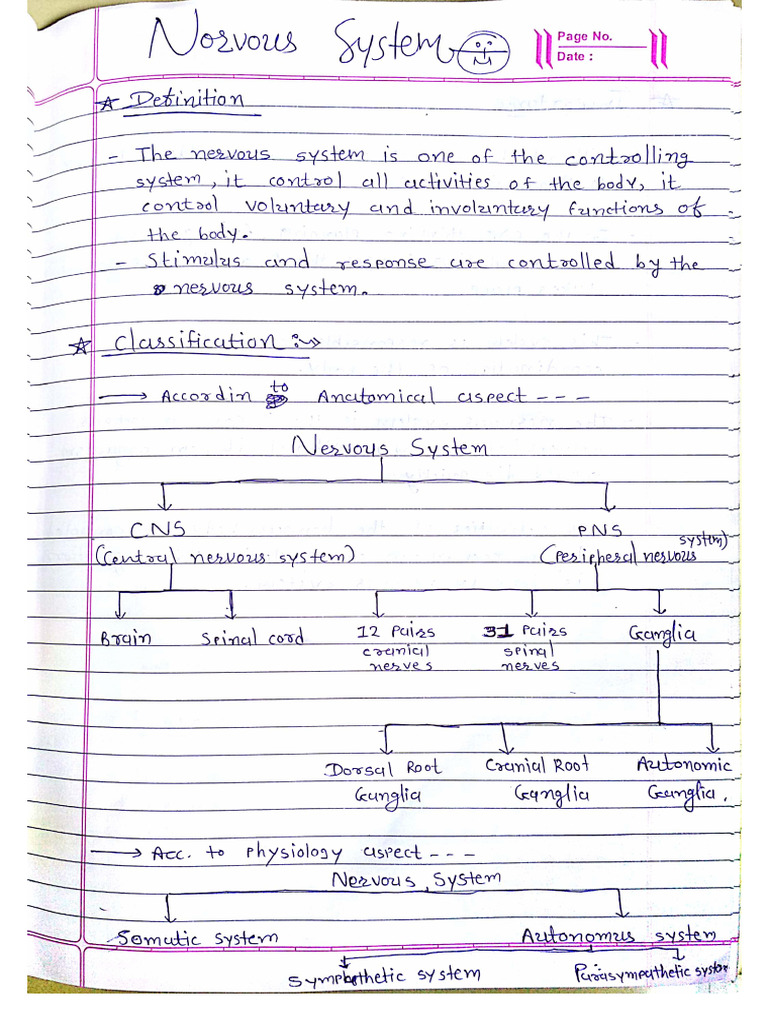 Nervous System
Page No.
Date :
Definition
- The nervous system is one of the controlling
system, it control all activities of the body, it
control voluntary and involuntary functions of
the body.
- Stimulus and response are controlled by the
nervous system.
Classification :→
→ Accordin to Anatomical aspect - - -
Nervous System
CNS PNS
(Central nervous system) (Peripheral nervous system)
Brain Spinal cord 12 Pairs 31 Pairs Ganglia
cranial spinal
nerves nerves
Dorsal Root Cranial Root Autonomic
Ganglia Ganglia Ganglia.
→ Acc. to physiology aspect - - -
Nervous System
Somatic system Autonomus system
Symphathetic system Parasympathetic system